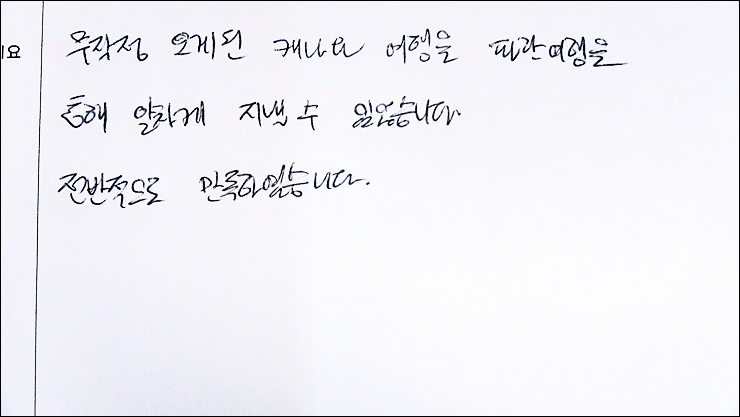 요
무작정 오게된 캐나다 여행을 파란여행을
통해 알차게 지낼 수 있었습니다
전반적으로 만족하였습니다.